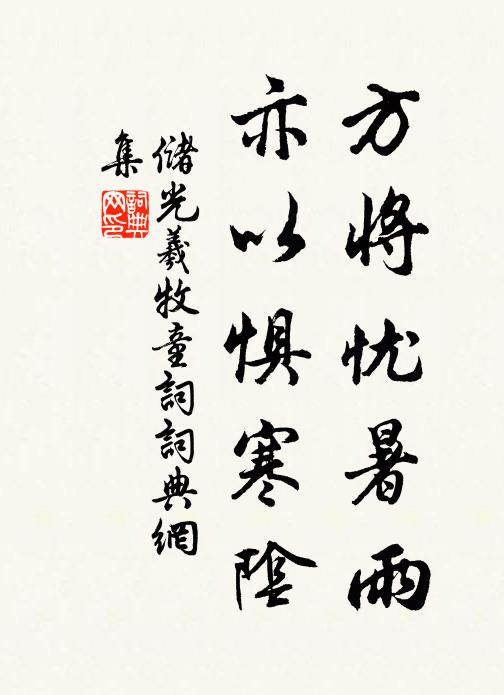 方将忧暑雨
亦以惧寒陰
儲光羲牧童詞詞典網
集
詞典网印